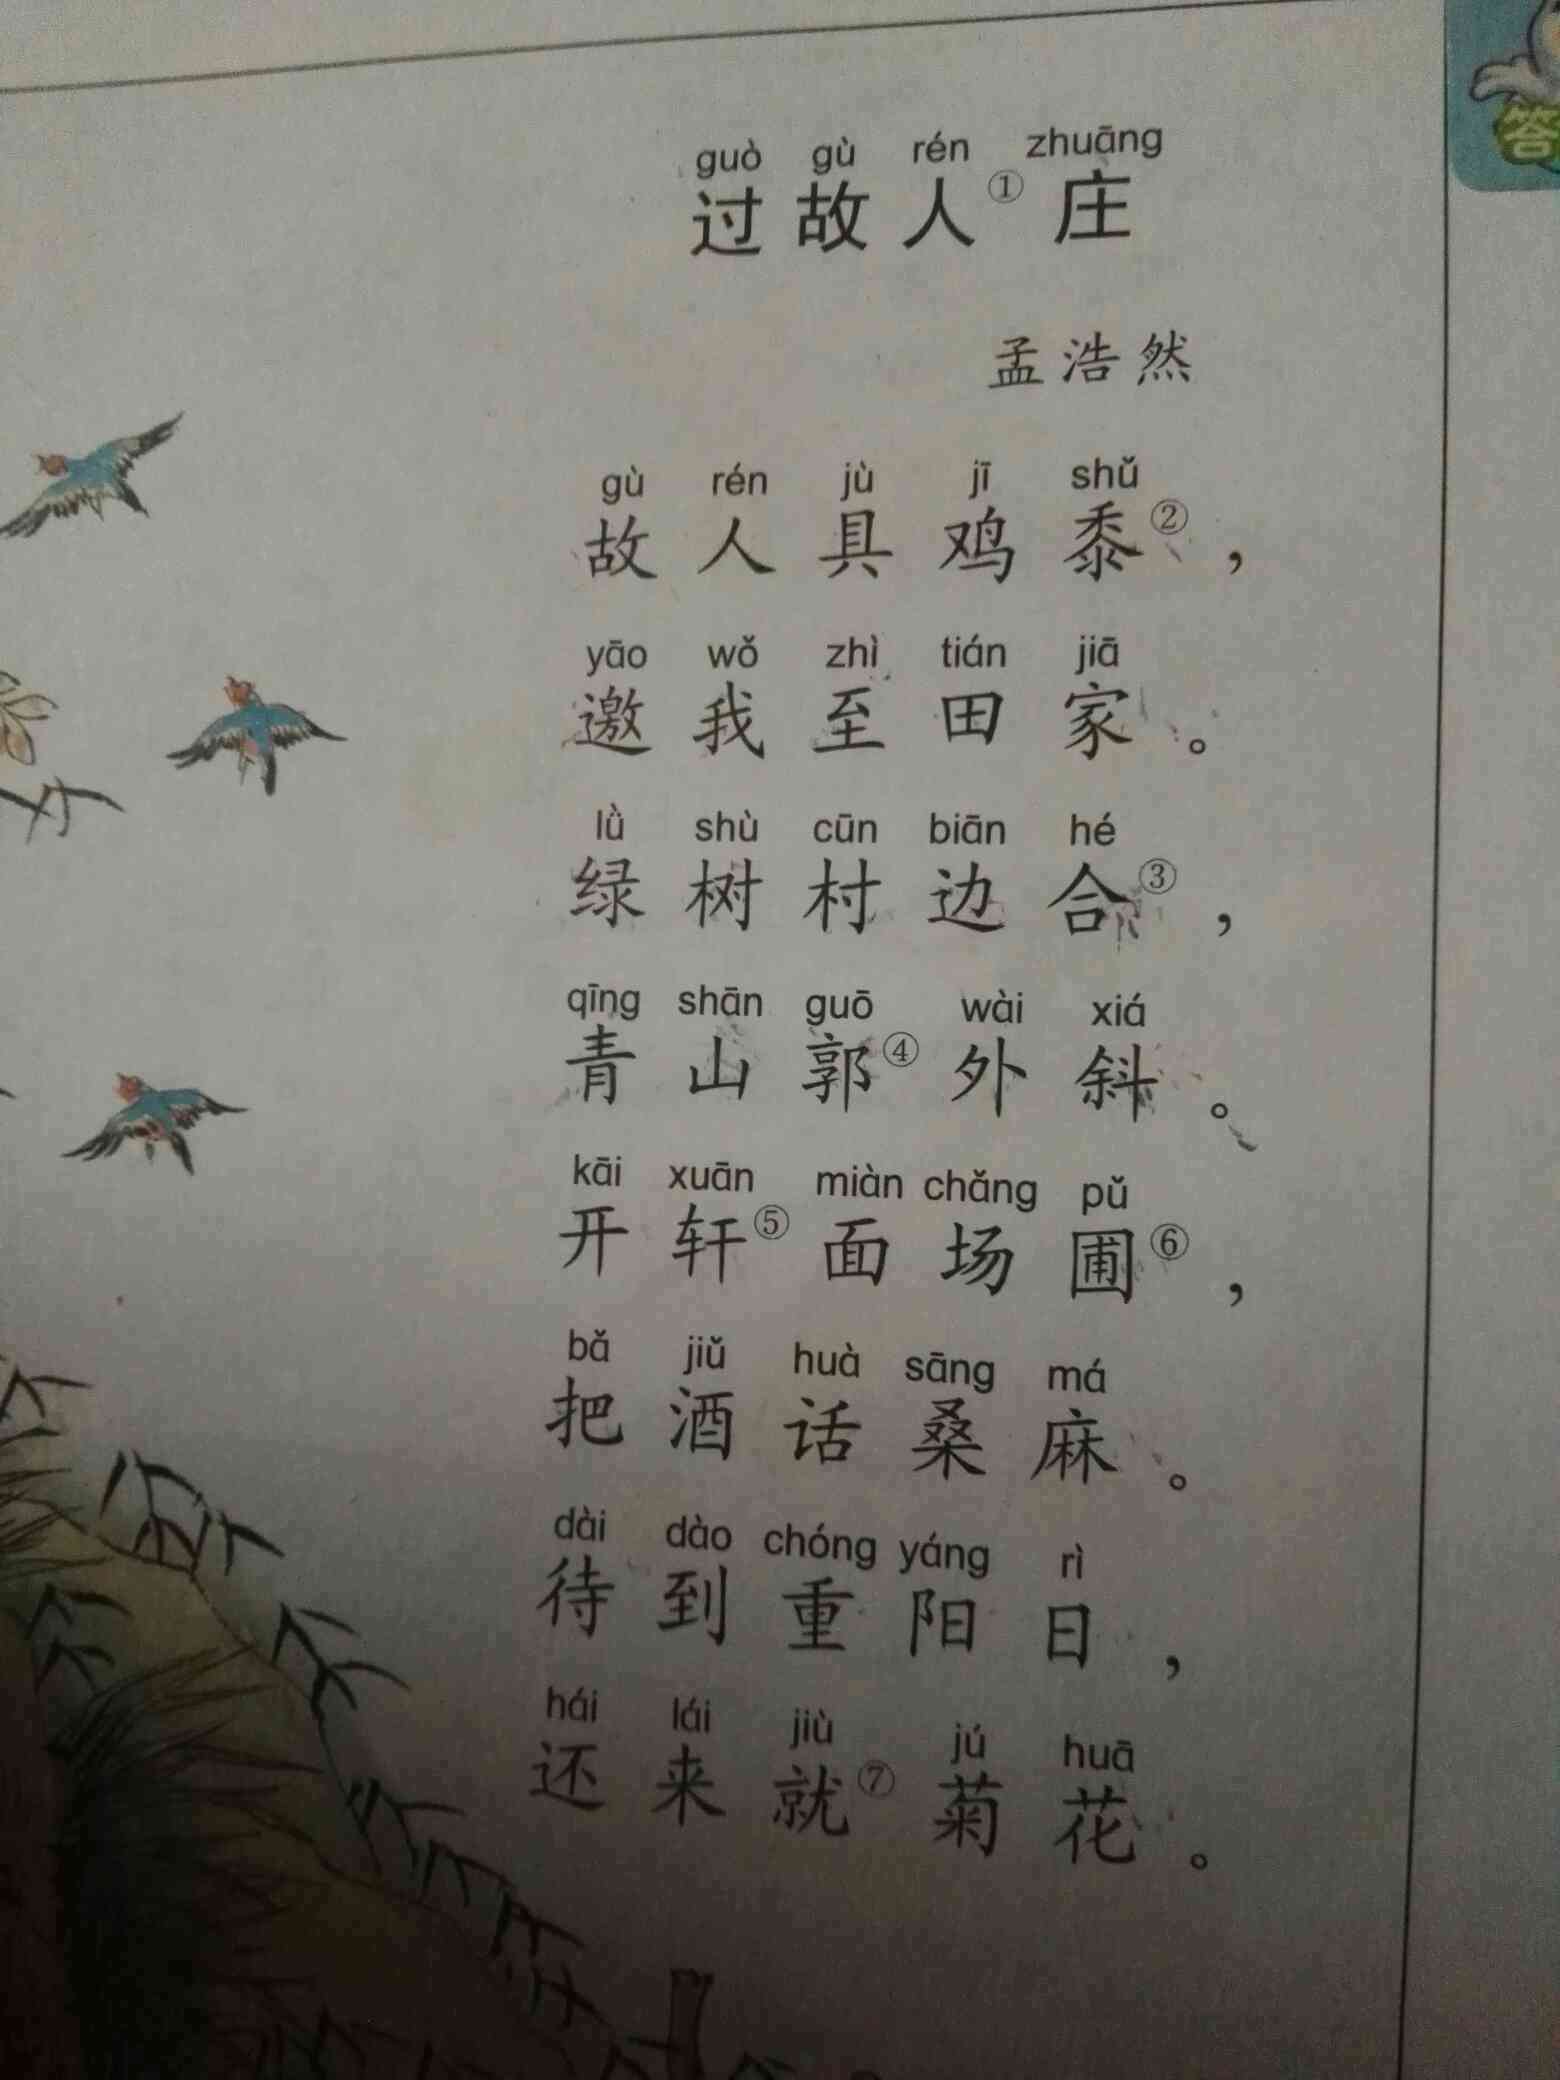 guò gù rén zhuāng
过故人①庄
孟浩然
gù rén jù jī shǔ
故人具鸡黍②，
yāo wǒ zhì tián jiā
邀我至田家。
lǜ shù cūn biān hé
绿树村边合③，
qīng shān guō wài xiá
青山郭④外斜。
kāi xuān miàn chǎng pǔ
开轩⑤面场圃⑥，
bǎ jiǔ huà sāng má
把酒话桑麻。
dài dào chóng yáng rì
待到重阳日，
hái lái jiù jú huā
还来就⑦菊花。
答